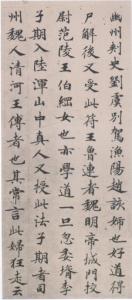 幽州刺史劉虞別駕漁陽趙該姊也好道得
尸解後又受此符王魯連者魏明帝城門校
尉范陵王伯綱女也亦學道一旦忽委壻李
子期入陸渾山中真人又授此法子期者司
州魏人清河王傳者也其常言此婦狂走云